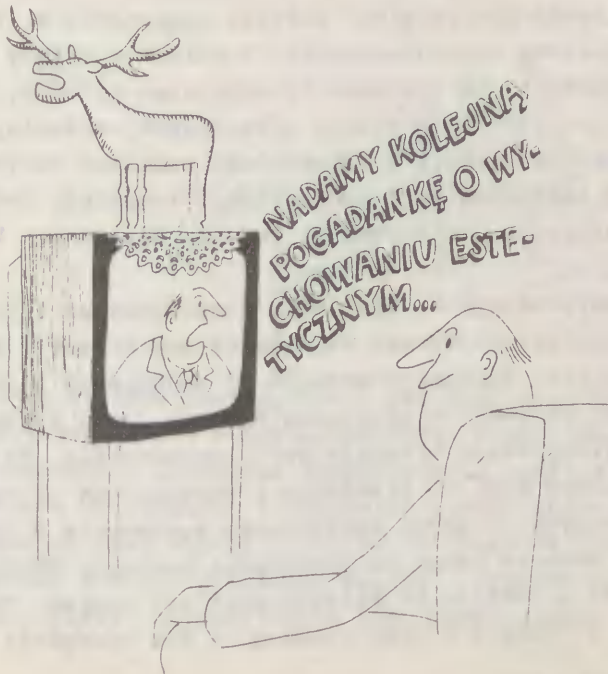 NADAMY KOLEJNĄ
POGADANKĘ O WY-
CHOWANIU ESTE-
TYCZNYM...